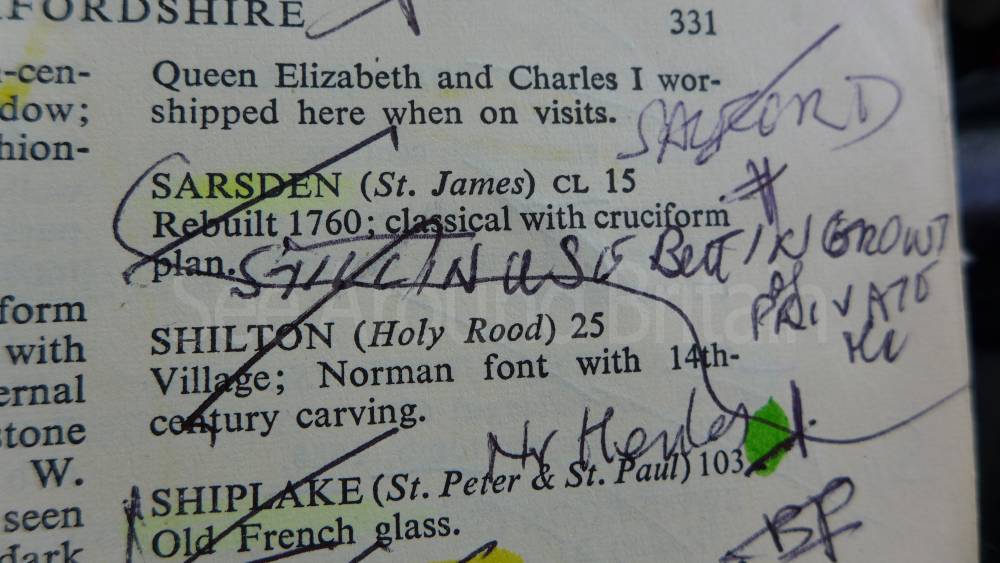 FORDSHIRE
331
-cen-
dow;
hion-
form
with
ernal
stone
W.
seen
dark
Queen Elizabeth and Charles I wor-
shipped here when on visits.
SARSDEN (St. James) CL 15
Rebuilt 1760; classical with cruciform
plan.
STILL IN USE BUT IN
OF
PRIVATE
SHILTON (Holy Rood) 25
Village; Norman font with 14th-
century carving.
Nr Henley
SHIPLAKE (St. Peter & St. Paul) 103
Old French glass.
BP
See Around Britain